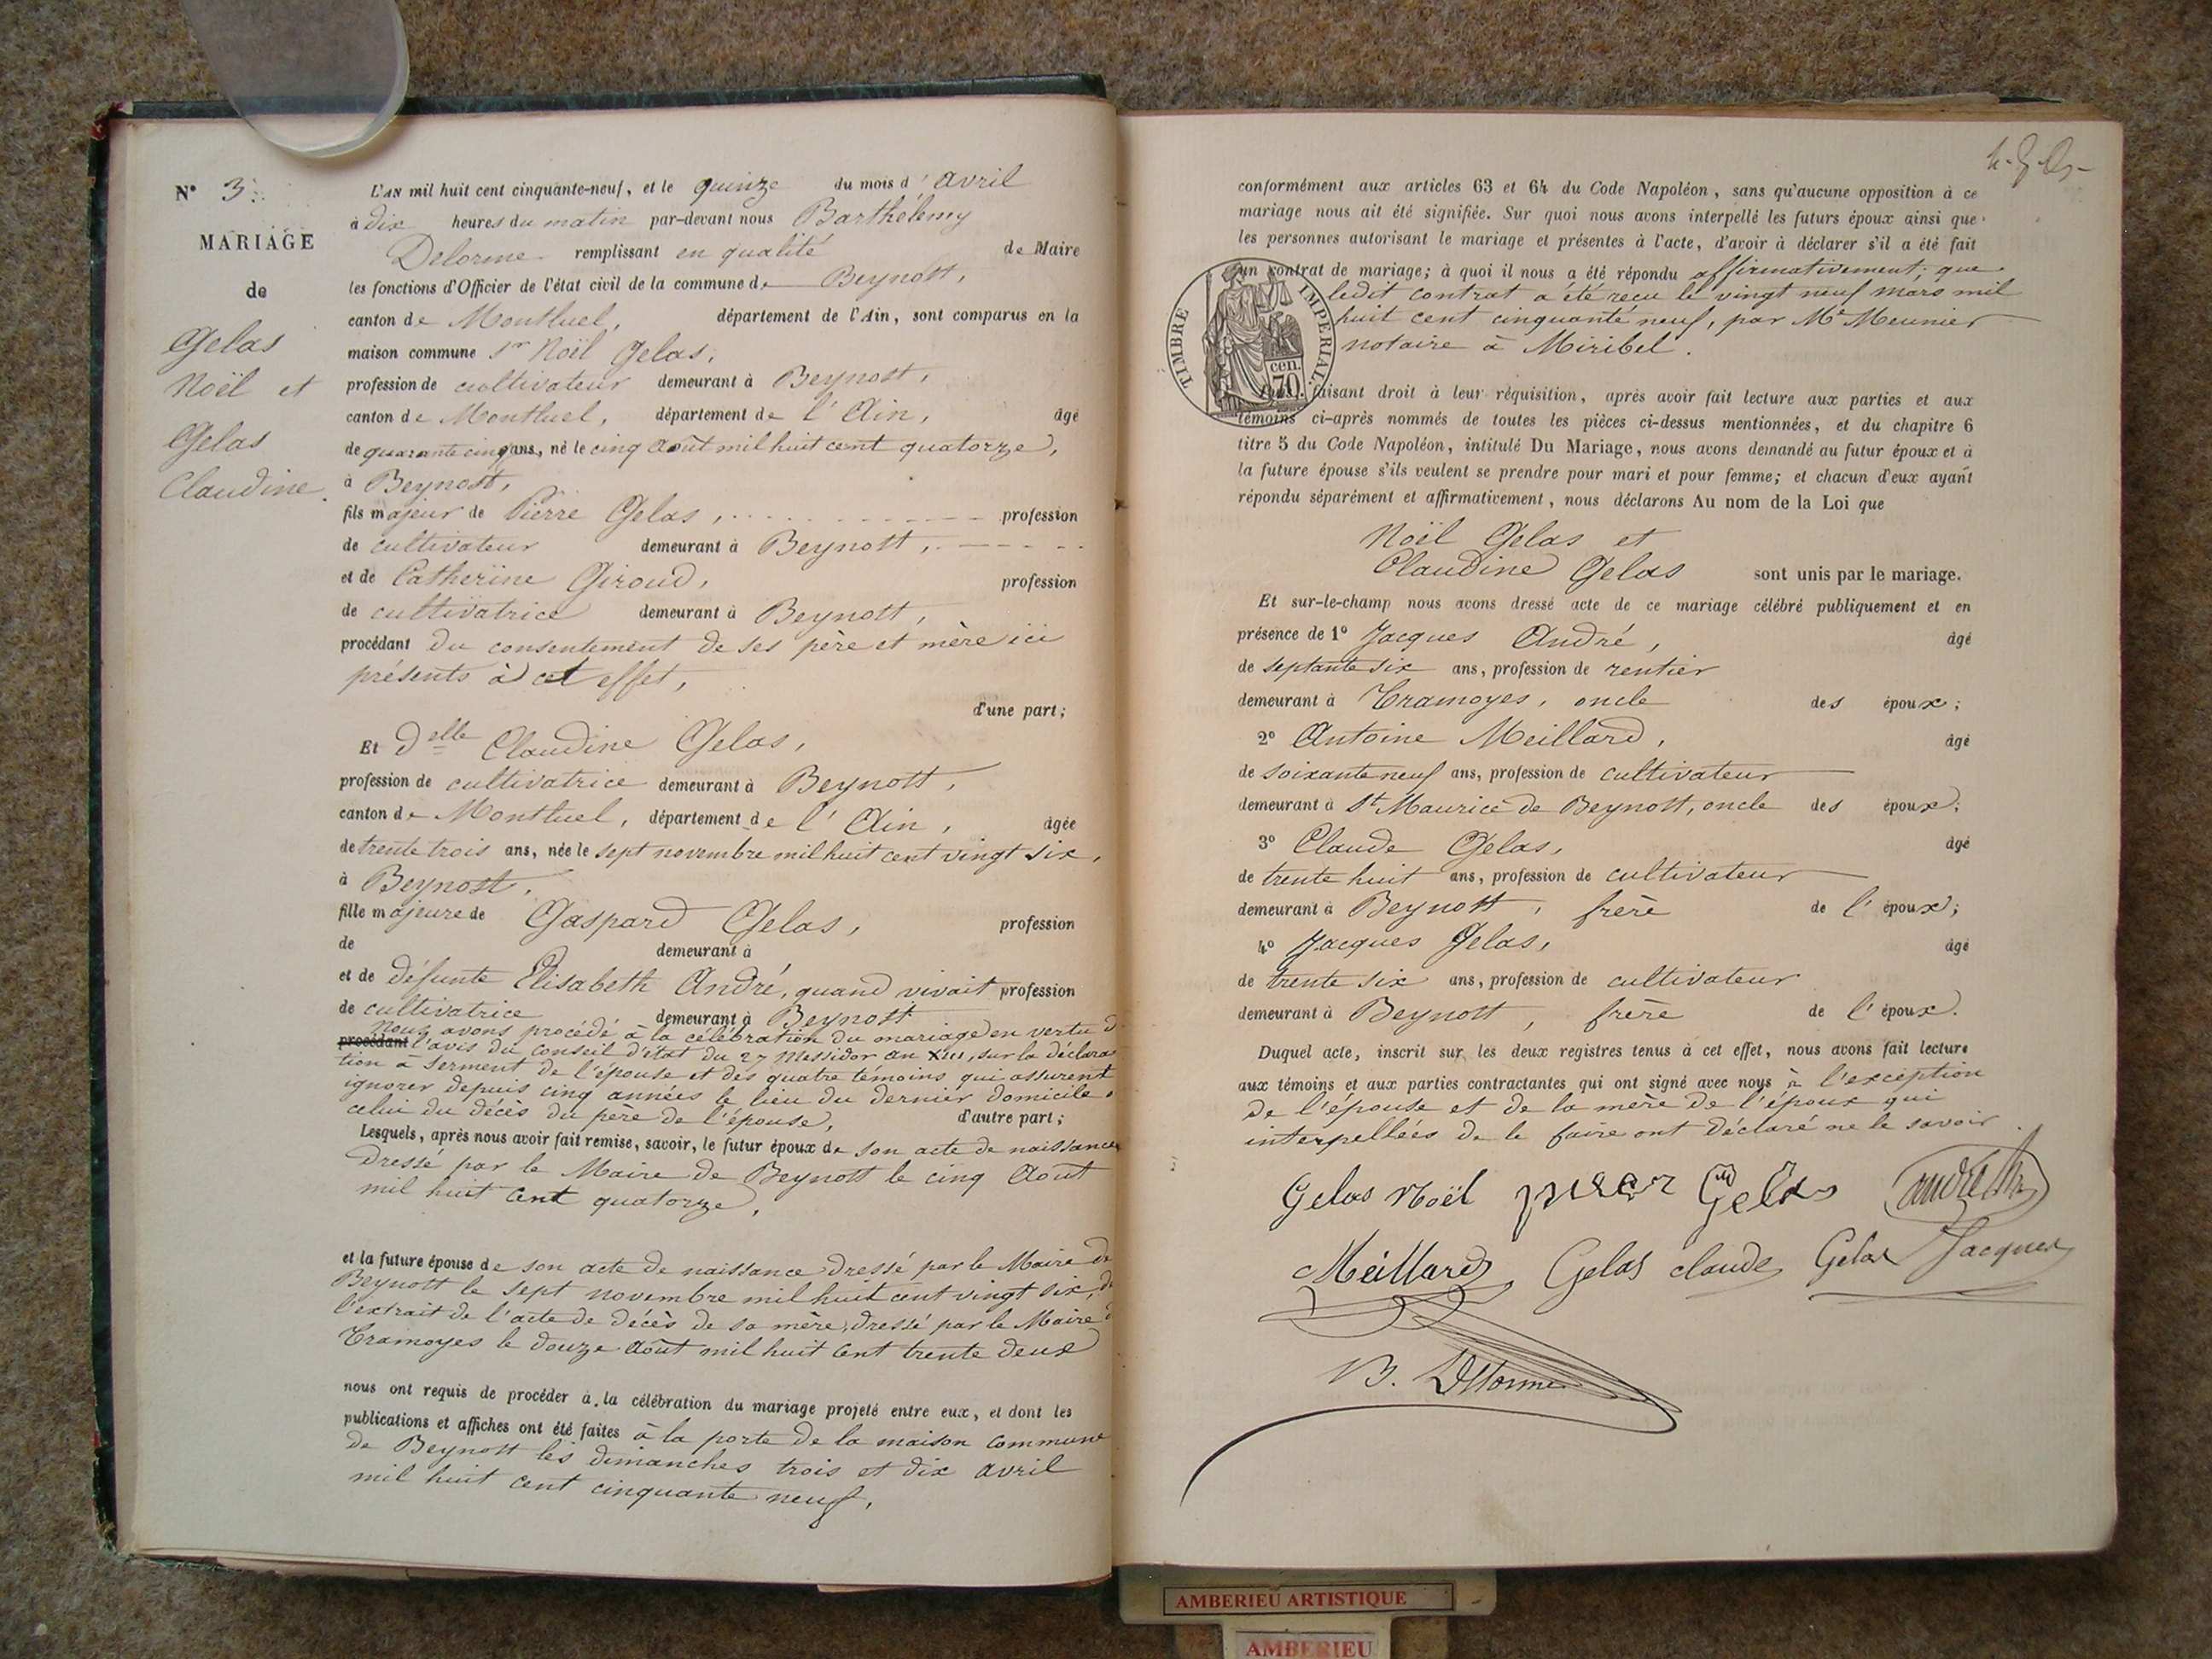 N° 3.
MARIAGE
de
Gelas
Noël et
Gelas
Claudine.
L'AN mil huit cent cinquante-neuf, et le quinze du mois d'avril
à dix heures du matin par-devant nous Barthélemy
Delorme remplissant en qualité de Maire
les fonctions d'Officier de l'état civil de la commune de Beynost,
canton de Montluel, département de l'Ain, sont comparus en la
maison commune Sr Noël Gelas,
profession de cultivateur demeurant à Beynost,
canton de Montluel, département de l'Ain, âgé
de quarante cinq ans, né le cinq août mil huit cent quatorze,
à Beynost,
fils majeur de Pierre Gelas, profession
de cultivateur demeurant à Beynost,
et de Catherine Giroud, profession
de cultivatrice demeurant à Beynost,
procédant du consentement de ses père et mère ici
présents à cet effet,
d'une part;
Et Delle Claudine Gelas,
profession de cultivatrice demeurant à Beynost,
canton de Montluel, département de l'Ain, âgée
de trente trois ans, née le sept novembre mil huit cent vingt six,
à Beynost,
fille majeure de Gaspard Gelas, profession
de demeurant à
et de défunte Elisabeth André, quand vivait profession
de cultivatrice demeurant à Beynost
nous avons procédé à la célébration du mariage en vertu d
procédant l'avis du conseil d'état du 27 Messidor an XIII, sur la déclara
tion à serment de l'épouse et des quatre témoins qui assurent
ignorer depuis cinq années le lieu du dernier domicile,
celui du décès du père de l'épouse, d'autre part;
Lesquels, après nous avoir fait remise, savoir, le futur époux de son acte de naissance
dressé par le Maire de Beynost le cinq Août
mil huit cent quatorze,
et la future épouse de son acte de naissance dressé par le Maire de
Beynost le sept novembre mil huit cent vingt six, de
l'extrait de l'acte de décès de sa mère, dressé par le Maire d
Tramoyes le douze août mil huit cent trente deux
nous ont requis de procéder à la célébration du mariage projeté entre eux, et dont les
publications et affiches ont été faites à la porte de la maison commune
de Beynost les dimanches trois et dix avril
mil huit cent cinquante neuf,
conformément aux articles 63 et 64 du Code Napoléon, sans qu'aucune opposition à ce
mariage nous ait été signifiée. Sur quoi nous avons interpellé les futurs époux ainsi que
les personnes autorisant le mariage et présentes à l'acte, d'avoir à déclarer s'il a été fait
un contrat de mariage; à quoi il nous a été répondu affirmativement; que
ledit contrat a été reçu le vingt neuf mars mil
huit cent cinquante neuf, par Me Meunier
notaire à Miribel.
TIMBRE IMPERIAL.
cen. 70
faisant droit à leur réquisition, après avoir fait lecture aux parties et aux
témoins ci-après nommés de toutes les pièces ci-dessus mentionnées, et du chapitre 6
titre 5 du Code Napoléon, intitulé Du Mariage, nous avons demandé au futur époux et à
la future épouse s'ils veulent se prendre pour mari et pour femme; et chacun d'eux ayant
répondu séparément et affirmativement, nous déclarons Au nom de la Loi que
Noël Gelas et
Claudine Gelas sont unis par le mariage.
Et sur-le-champ nous avons dressé acte de ce mariage célébré publiquement et en
présence de 1° Jacques André, âgé
de septante six ans, profession de rentier
demeurant à Tramoyes, oncle des époux;
2° Antoine Meillard, âgé
de soixante neuf ans, profession de cultivateur
demeurant à St Maurice de Beynost, oncle des époux;
3° Claude Gelas, âgé
de trente huit ans, profession de cultivateur
demeurant à Beynost, frère de l'époux;
4° Jacques Gelas, âgé
de trente six ans, profession de cultivateur
demeurant à Beynost, frère de l'époux.
Duquel acte, inscrit sur les deux registres tenus à cet effet, nous avons fait lecture
aux témoins et aux parties contractantes qui ont signé avec nous à l'exception
de l'épouse et de la mère de l'époux qui
interpellées de le faire ont déclaré ne le savoir.
Gelas Noël Gelas andré
Meillard Gelas claude Gelas Jacques
B. Delorme
AMBERIEU ARTISTIQUE
AMBERIEU